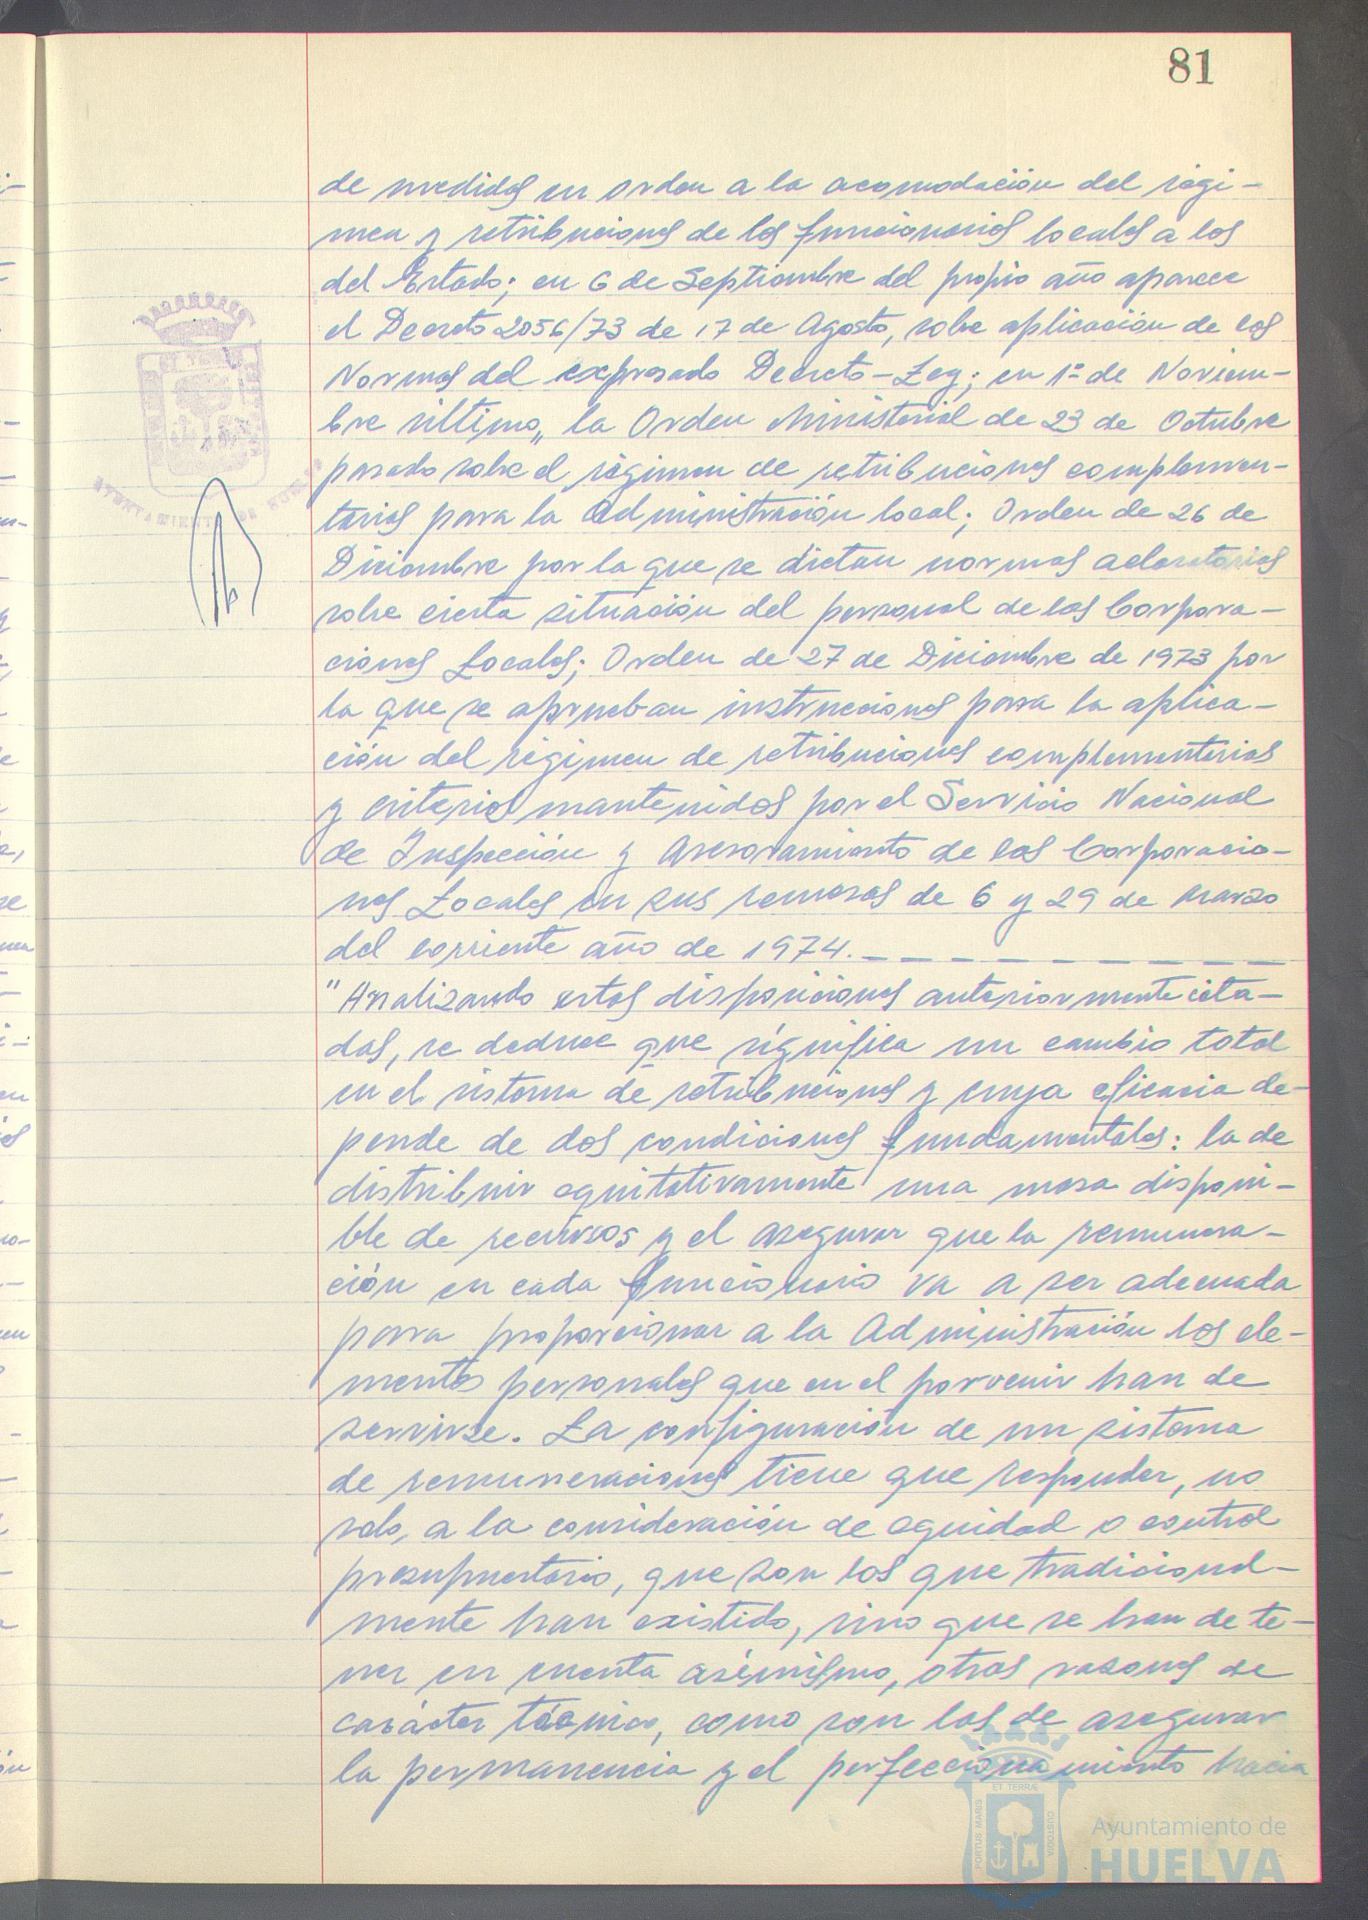 81
de medidas en orden a la acomodación del régi-
men y retribuciones de los funcionarios locales a los
del Estado; en 6 de Septiembre del propio año aparece
el Decreto 2056/73 de 17 de Agosto, sobre aplicación de las
Normas del expresado Decreto-Ley; en 1º de Noviem-
bre último, la Orden Ministerial de 23 de Octubre
pasado sobre el régimen de retribuciones complemen-
tarias para la Administración local; Orden de 26 de
Diciembre por la que se dictan normas aclaratorias
sobre cierta situación del personal de las Corpora-
ciones Locales; Orden de 27 de Diciembre de 1973 por
la que se aprueban instrucciones para la aplica-
ción del régimen de retribuciones complementarias
y criterios mantenidos por el Servicio Nacional
de Inspección y Asesoramiento de las Corporacio-
nes Locales en sus remesas de 6 y 29 de Marzo
del corriente año de 1974.
"Analizando estas disposiciones anteriormente cita-
das, se deduce que significa un cambio total
en el sistema de retribuciones y cuya eficacia de-
pende de dos condiciones fundamentales: la de
distribuir equitativamente una masa disponi-
ble de recursos y el asegurar que la remunera-
ción en cada funcionario va a ser adecuada
para proporcionar a la Administración los ele-
mentos personales que en el porvenir han de
servirse. La configuración de un sistema
de remuneraciones tiene que responder, no
solo, a la consideración de equidad o control
presupuestario, que son los que tradicional-
mente han existido, sino que se han de te-
ner en cuenta asímismo, otras razones de
carácter técnico, como son las de asegurar
la permanencia y el perfeccionamiento hacia
AYUNTAMIENTO DE HUELVA
PORTUS MARIS ET TERRÆ CUSTODIA
Ayuntamiento de
HUELVA